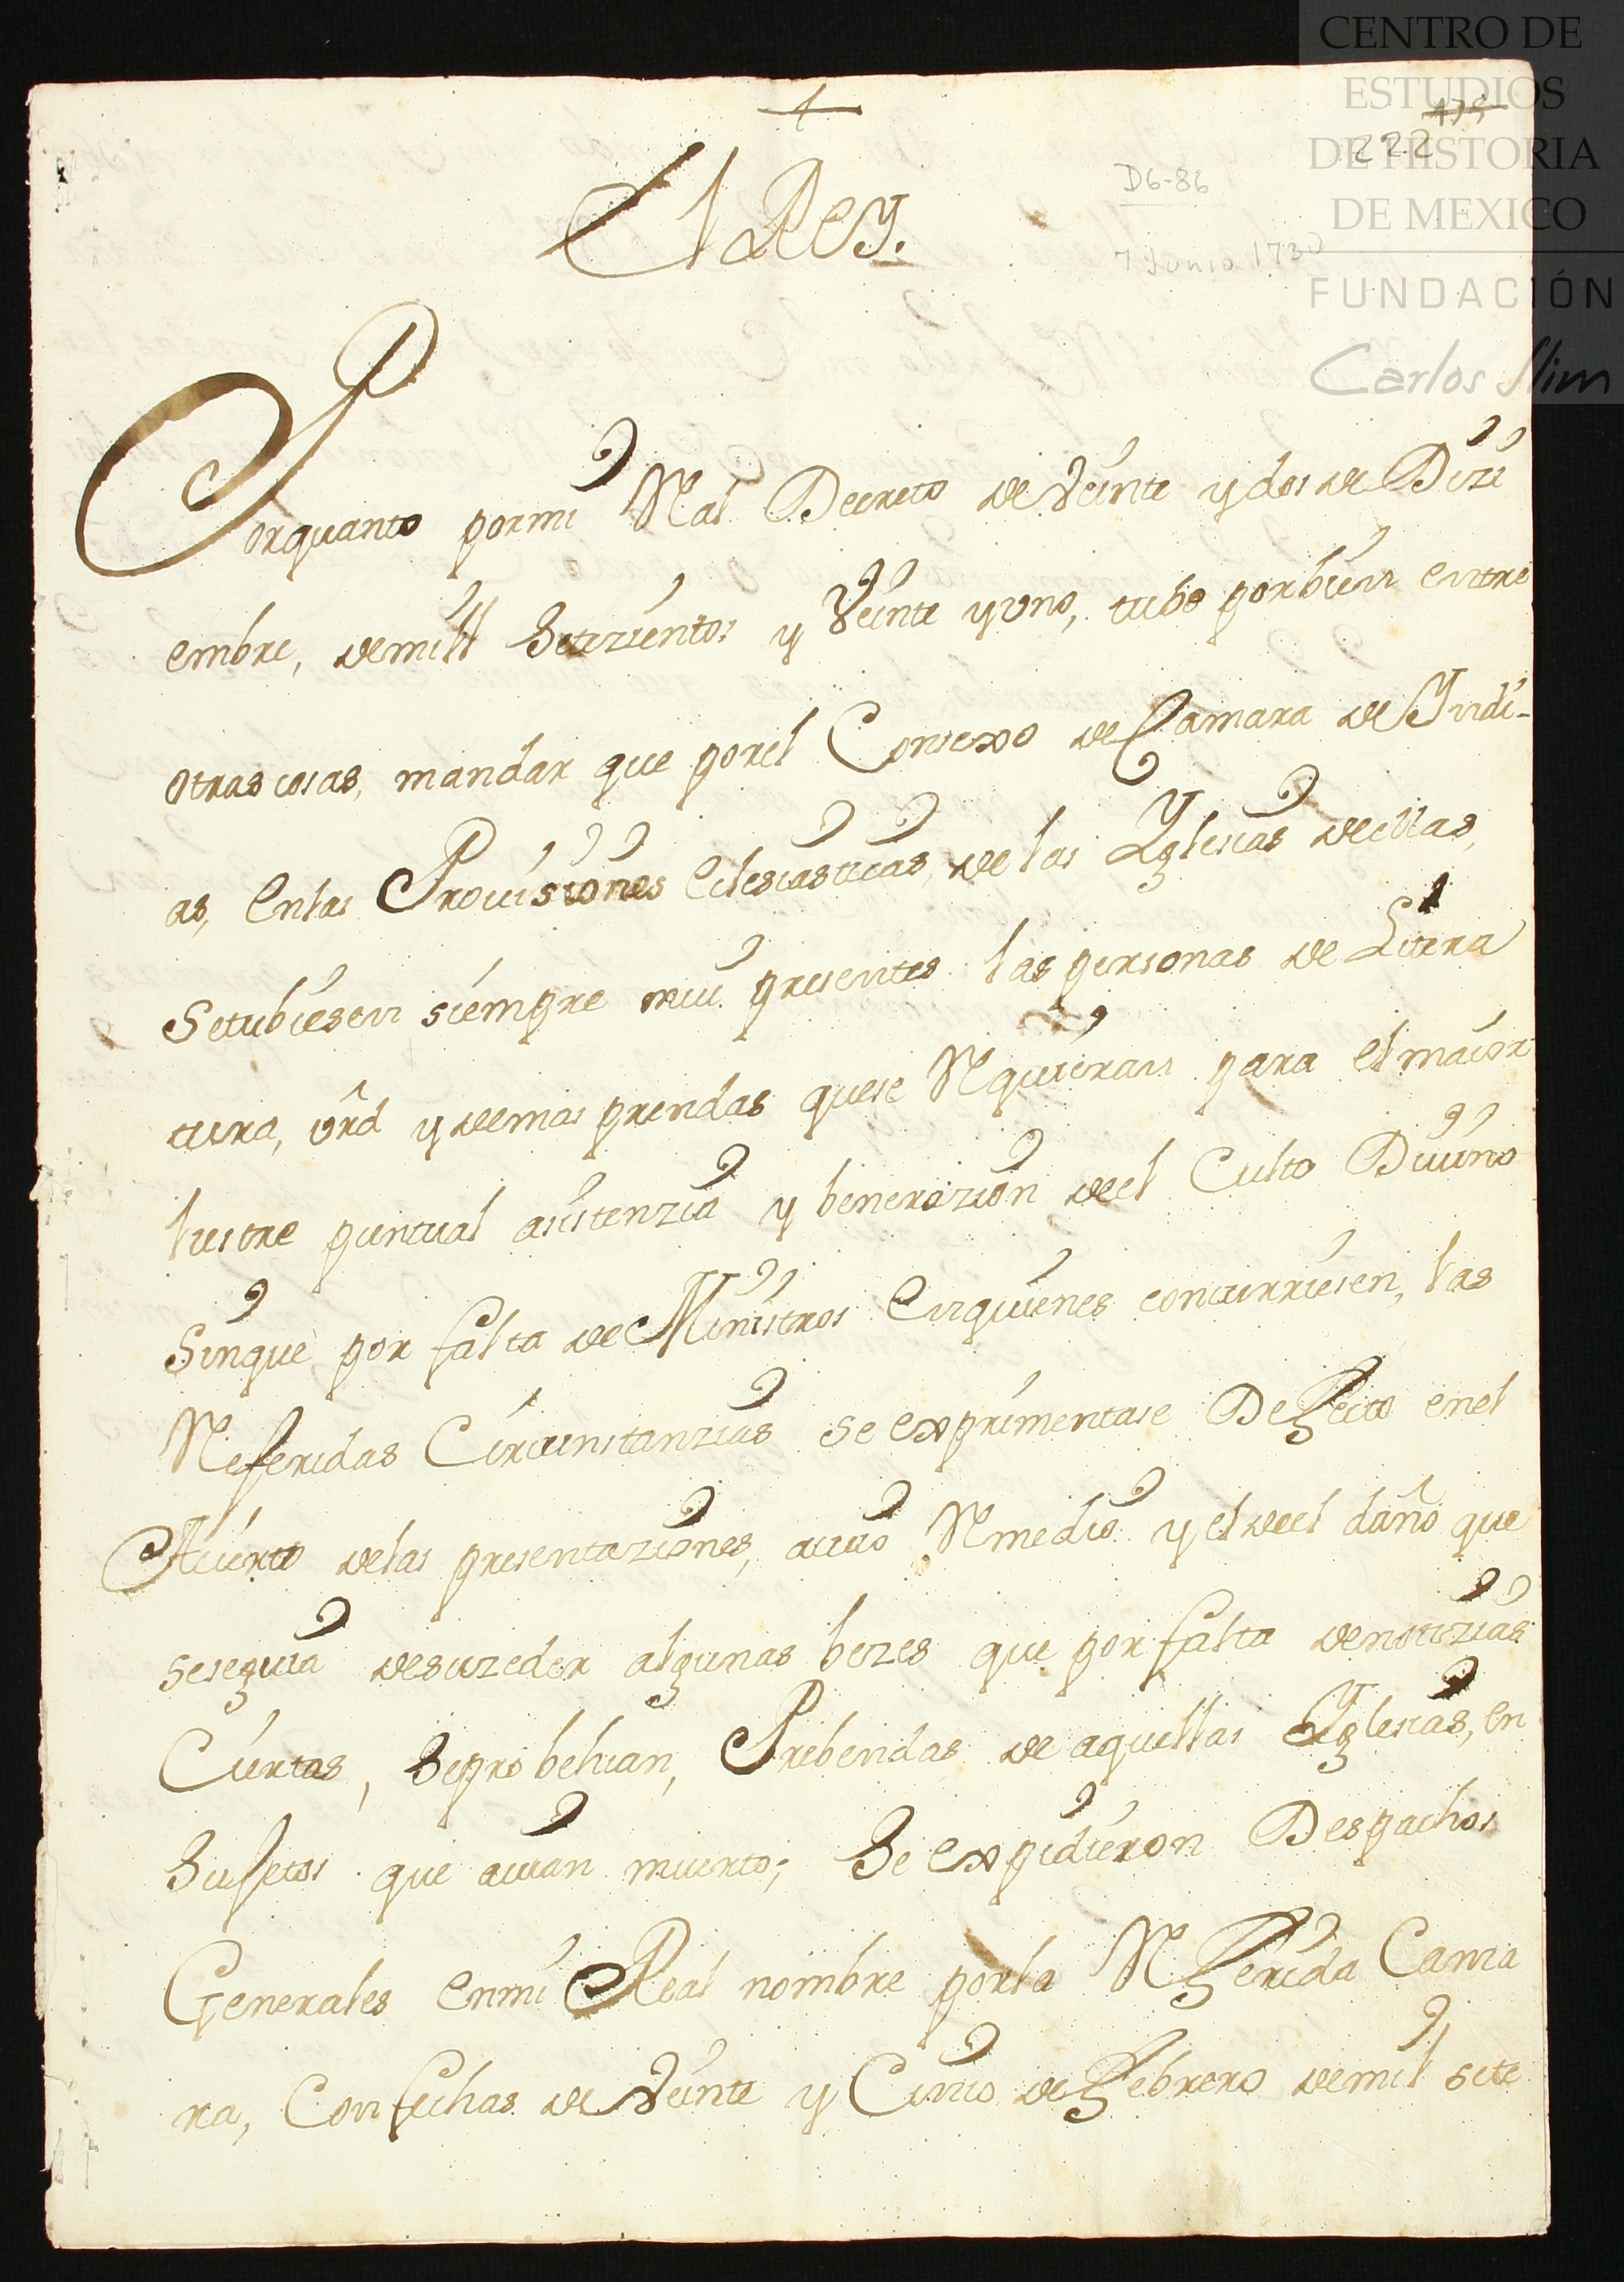 CENTRO DE
ESTUDIOS
DE HISTORIA
DE MEXICO
FUNDACIÓN
Carlos Slim
175
222
D6-86
7 Junio 1730
El Rey.
Porquanto pormi Rl Decreto de Veinte y dos de Dizi
embre, demill Setezientos y Veinte yuno, tube porbien entre
otras cosas, mandar que porel Consexo de Camara de Yndi-
as, enlas Provisiones eclesiasticas, de las Yglesias de ellas,
Setubiesen siempre mui presentes las personas de Litera
tura, vrd y demas prendas quese Requieran para el maior
lustre puntual asistenzia y benerazion deel Culto Diuino
Sinque por falta de Ministros enquienes concurriesen, las
Referidas Circunstanzias se exprimentase Defecto enel
Acierto delas presentaziones, auio Remedio y el deel daño que
seseguia desuzeder algunas bezes que por falta denotizias
Ciertas, Seprobehian, Prebendas de aquellas Yglesias, en
Sujetos que auian muerto; Se expidieron Despachos
Generales enmi Real nombre porla Referida Cama
ra, Con fechas de Veinte y Cinco de Febrero demil sete